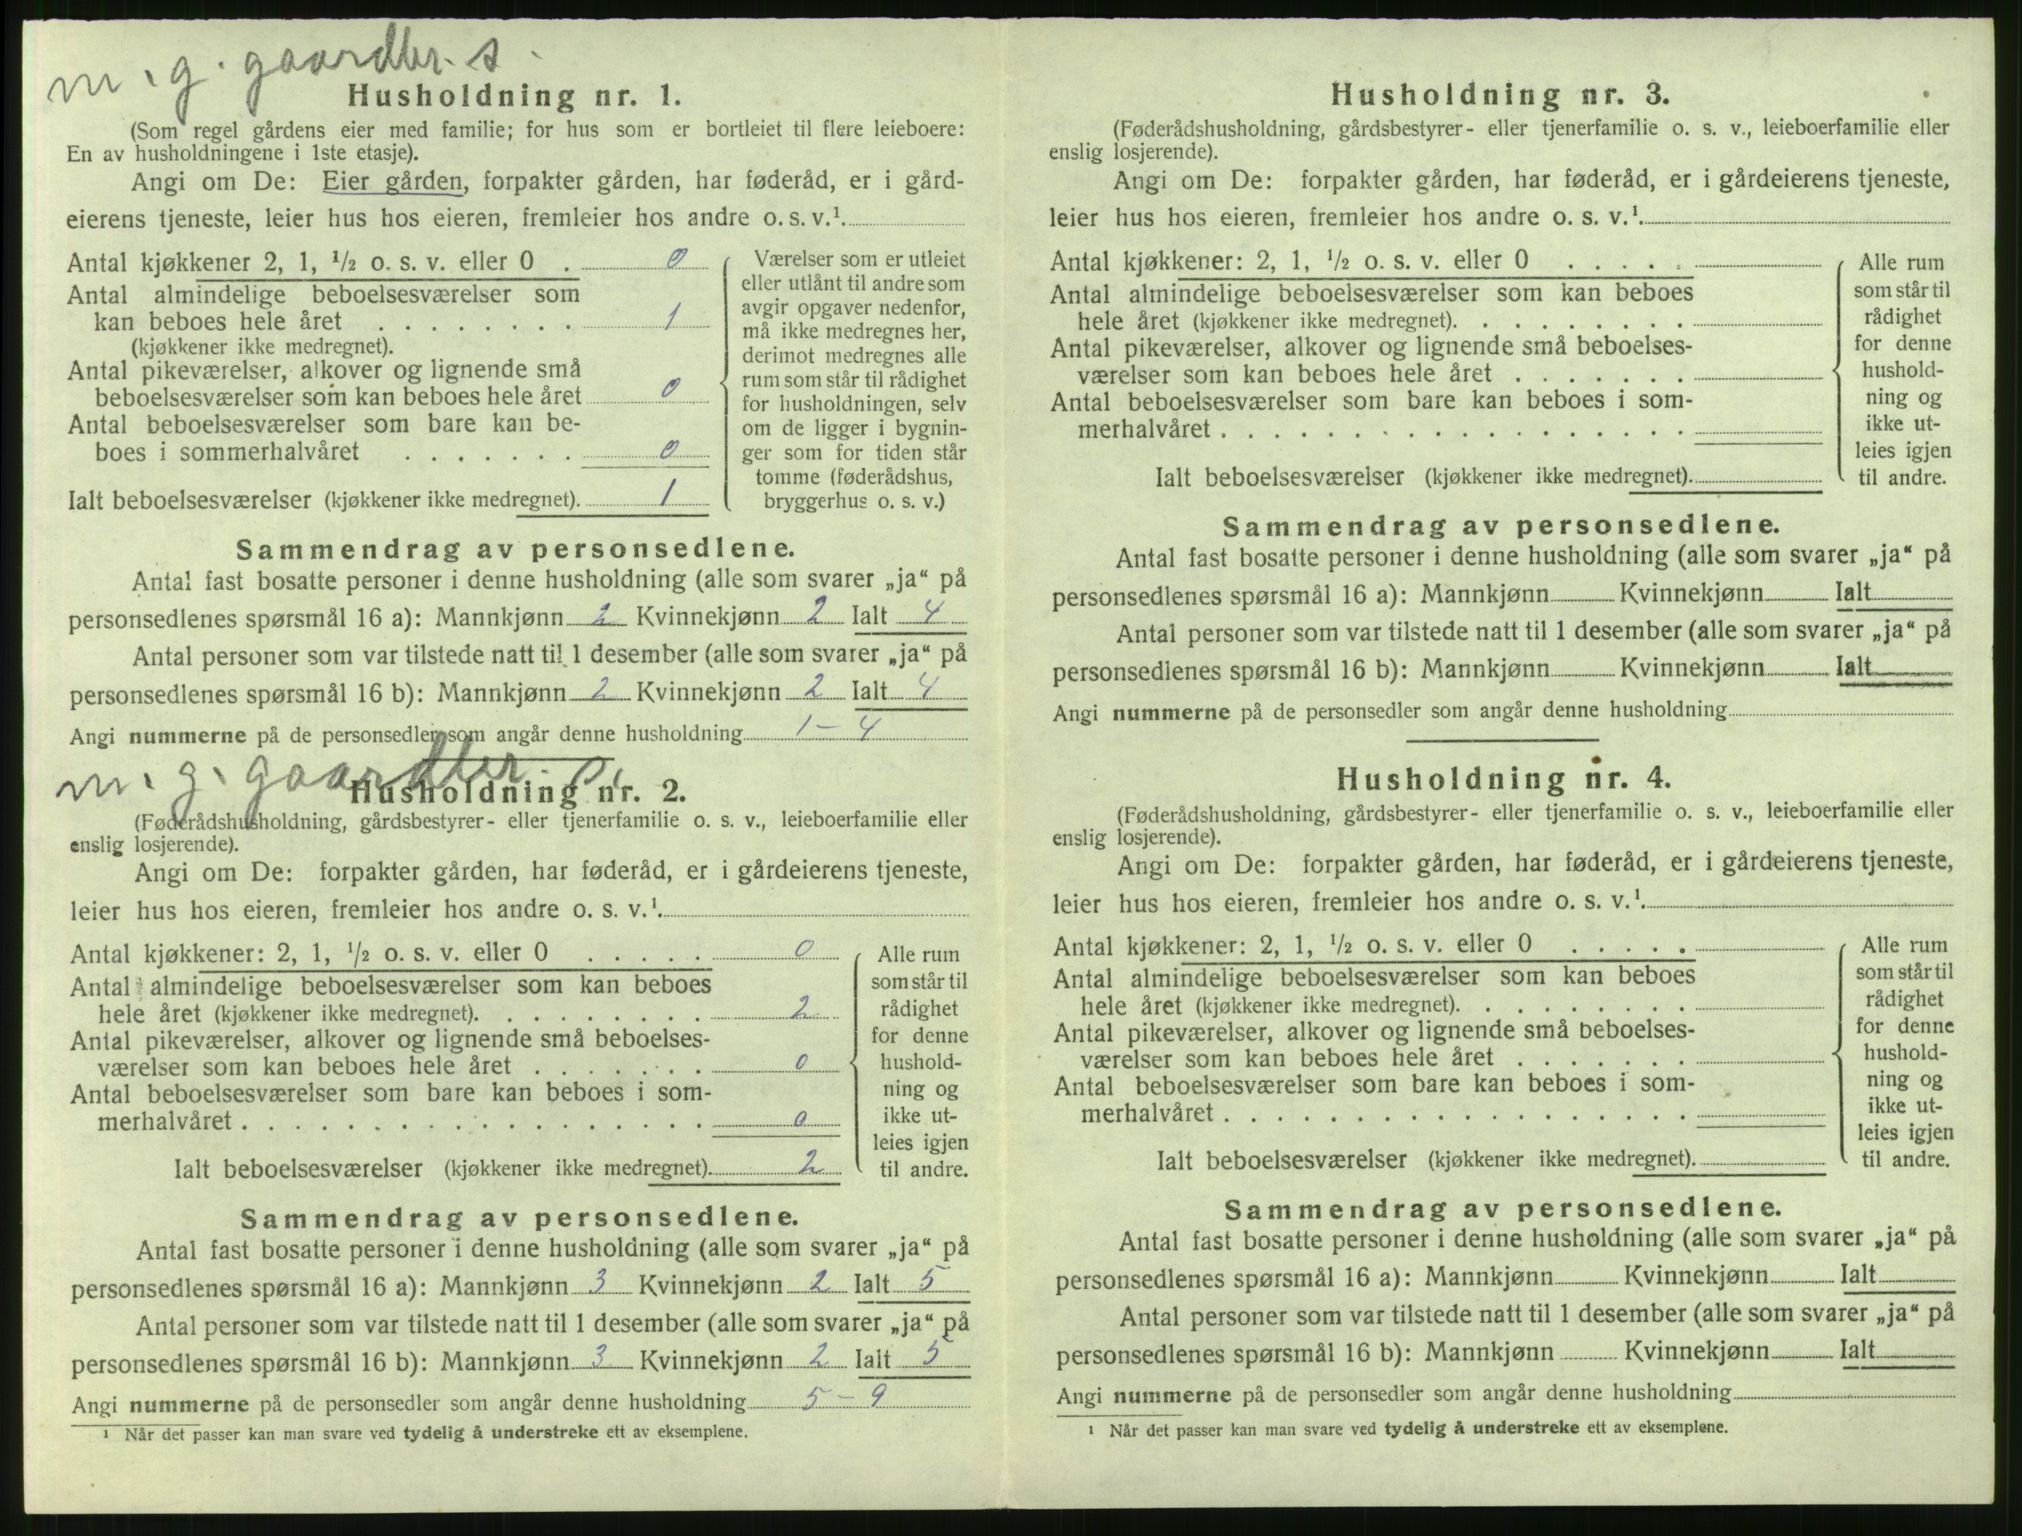 m. g. gaardbr. s.
Husholdning nr. 1.
(Som regel gårdens eier med familie; for hus som er bortleiet til flere leieboere:
En av husholdningene i 1ste etasje).
Angi om De: Eier gården, forpakter gården, har føderåd, er i gård-
eierens tjeneste, leier hus hos eieren, fremleier hos andre o. s. v.¹
Antal kjøkkener 2, 1, ½ o. s. v. eller 0 . 0
Antal almindelige beboelsesværelser som
kan beboes hele året . . . . . . . . 1
(kjøkkener ikke medregnet).
Antal pikeværelser, alkover og lignende små
beboelsesværelser som kan beboes hele året 0
Antal beboelsesværelser som bare kan be-
boes i sommerhalvåret . . . . . . . 0
Ialt beboelsesværelser (kjøkkener ikke medregnet). 1
Værelser som er utleiet
eller utlånt til andre som
avgir opgaver nedenfor,
må ikke medregnes her,
derimot medregnes alle
rum som står til rådighet
for husholdningen, selv
om de ligger i bygnin-
ger som for tiden står
tomme (føderådshus,
bryggerhus o. s. v.)
Sammendrag av personsedlene.
Antal fast bosatte personer i denne husholdning (alle som svarer „ja“ på
personsedlenes spørsmål 16 a): Mannkjønn 2 Kvinnekjønn 2 Ialt 4
Antal personer som var tilstede natt til 1 desember (alle som svarer „ja“ på
personsedlenes spørsmål 16 b): Mannkjønn 2 Kvinnekjønn 2 Ialt 4
Angi nummerne på de personsedler som angår denne husholdning 1 – 4
m. g. gaardbr. s.
Husholdning nr. 2.
(Føderådshusholdning, gårdsbestyrer- eller tjenerfamilie o. s. v., leieboerfamilie eller
enslig losjerende).
Angi om De: forpakter gården, har føderåd, er i gårdeierens tjeneste,
leier hus hos eieren, fremleier hos andre o. s. v.¹
Antal kjøkkener: 2, 1, ½ o. s. v. eller 0 . . . . . 0
Antal almindelige beboelsesværelser som kan beboes
hele året (kjøkkener ikke medregnet). . . . . . . . . 2
Antal pikeværelser, alkover og lignende små beboelses-
værelser som kan beboes hele året . . . . . . . 0
Antal beboelsesværelser som bare kan beboes i som-
merhalvåret . . . . . . . . . . . . . . . . . . 0
Ialt beboelsesværelser (kjøkkener ikke medregnet). 2
Alle rum
som står til
rådighet
for denne
hushold-
ning og
ikke ut-
leies igjen
til andre.
Sammendrag av personsedlene.
Antal fast bosatte personer i denne husholdning (alle som svarer „ja“ på
personsedlenes spørsmål 16 a): Mannkjønn 3 Kvinnekjønn 2 Ialt 5
Antal personer som var tilstede natt til 1 desember (alle som svarer „ja“ på
personsedlenes spørsmål 16 b): Mannkjønn 3 Kvinnekjønn 2 Ialt 5
Angi nummerne på de personsedler som angår denne husholdning 5 – 9
¹ Når det passer kan man svare ved tydelig å understreke ett av eksemplene.
Husholdning nr. 3.
(Føderådshusholdning, gårdsbestyrer- eller tjenerfamilie o. s. v., leieboerfamilie eller
enslig losjerende).
Angi om De: forpakter gården, har føderåd, er i gårdeierens tjeneste,
leier hus hos eieren, fremleier hos andre o. s. v.¹
Antal kjøkkener: 2, 1, ½ o. s. v. eller 0 . . . . .
Antal almindelige beboelsesværelser som kan beboes
hele året (kjøkkener ikke medregnet). . . . . . . . .
Antal pikeværelser, alkover og lignende små beboelses-
værelser som kan beboes hele året . . . . . . .
Antal beboelsesværelser som bare kan beboes i som-
merhalvåret . . . . . . . . . . . . . . . . . .
Ialt beboelsesværelser (kjøkkener ikke medregnet).
Alle rum
som står til
rådighet
for denne
hushold-
ning og
ikke ut-
leies igjen
til andre.
Sammendrag av personsedlene.
Antal fast bosatte personer i denne husholdning (alle som svarer „ja“ på
personsedlenes spørsmål 16 a): Mannkjønn Kvinnekjønn Ialt
Antal personer som var tilstede natt til 1 desember (alle som svarer „ja“ på
personsedlenes spørsmål 16 b): Mannkjønn Kvinnekjønn Ialt
Angi nummerne på de personsedler som angår denne husholdning
Husholdning nr. 4.
(Føderådshusholdning, gårdsbestyrer- eller tjenerfamilie o. s. v., leieboerfamilie eller
enslig losjerende).
Angi om De: forpakter gården, har føderåd, er i gårdeierens tjeneste,
leier hus hos eieren, fremleier hos andre o. s. v.¹
Antal kjøkkener: 2, 1, ½ o. s. v. eller 0 . . . . .
Antal almindelige beboelsesværelser som kan beboes
hele året (kjøkkener ikke medregnet). . . . . . . . .
Antal pikeværelser, alkover og lignende små beboelses-
værelser som kan beboes hele året . . . . . . .
Antal beboelsesværelser som bare kan beboes i som-
merhalvåret . . . . . . . . . . . . . . . . . .
Ialt beboelsesværelser (kjøkkener ikke medregnet).
Alle rum
som står til
rådighet
for denne
hushold-
ning og
ikke ut-
leies igjen
til andre.
Sammendrag av personsedlene.
Antal fast bosatte personer i denne husholdning (alle som svarer „ja“ på
personsedlenes spørsmål 16 a): Mannkjønn Kvinnekjønn Ialt
Antal personer som var tilstede natt til 1 desember (alle som svarer „ja“ på
personsedlenes spørsmål 16 b): Mannkjønn Kvinnekjønn Ialt
Angi nummerne på de personsedler som angår denne husholdning
¹ Når det passer kan man svare ved tydelig å understreke ett av eksemplene.